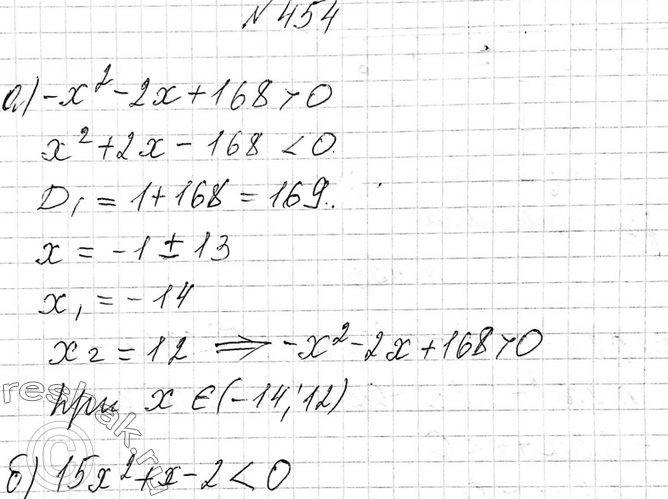 №454
а) -x² - 2x + 168 > 0
x² + 2x - 168 < 0
D₁ = 1 + 168 = 169.
x = -1 ± 13
x₁ = -14
x₂ = 12 ⇒ -x² - 2x + 168 > 0
при x ∈ (-14; 12)
б) 15x² + x - 2 < 0
reshak.ru
©